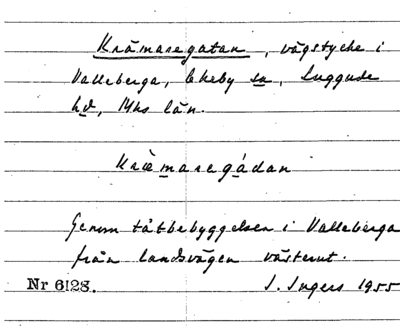 Krämaregatan, vägstycke i
Valleberga, Ekeby sn, Luggude
hd, Mhs län.
Kræmaregådan
Genom tätbebyggelsen i Valleberga
från landsvägen västerut.
Nr 6128. I. Ingers 1955